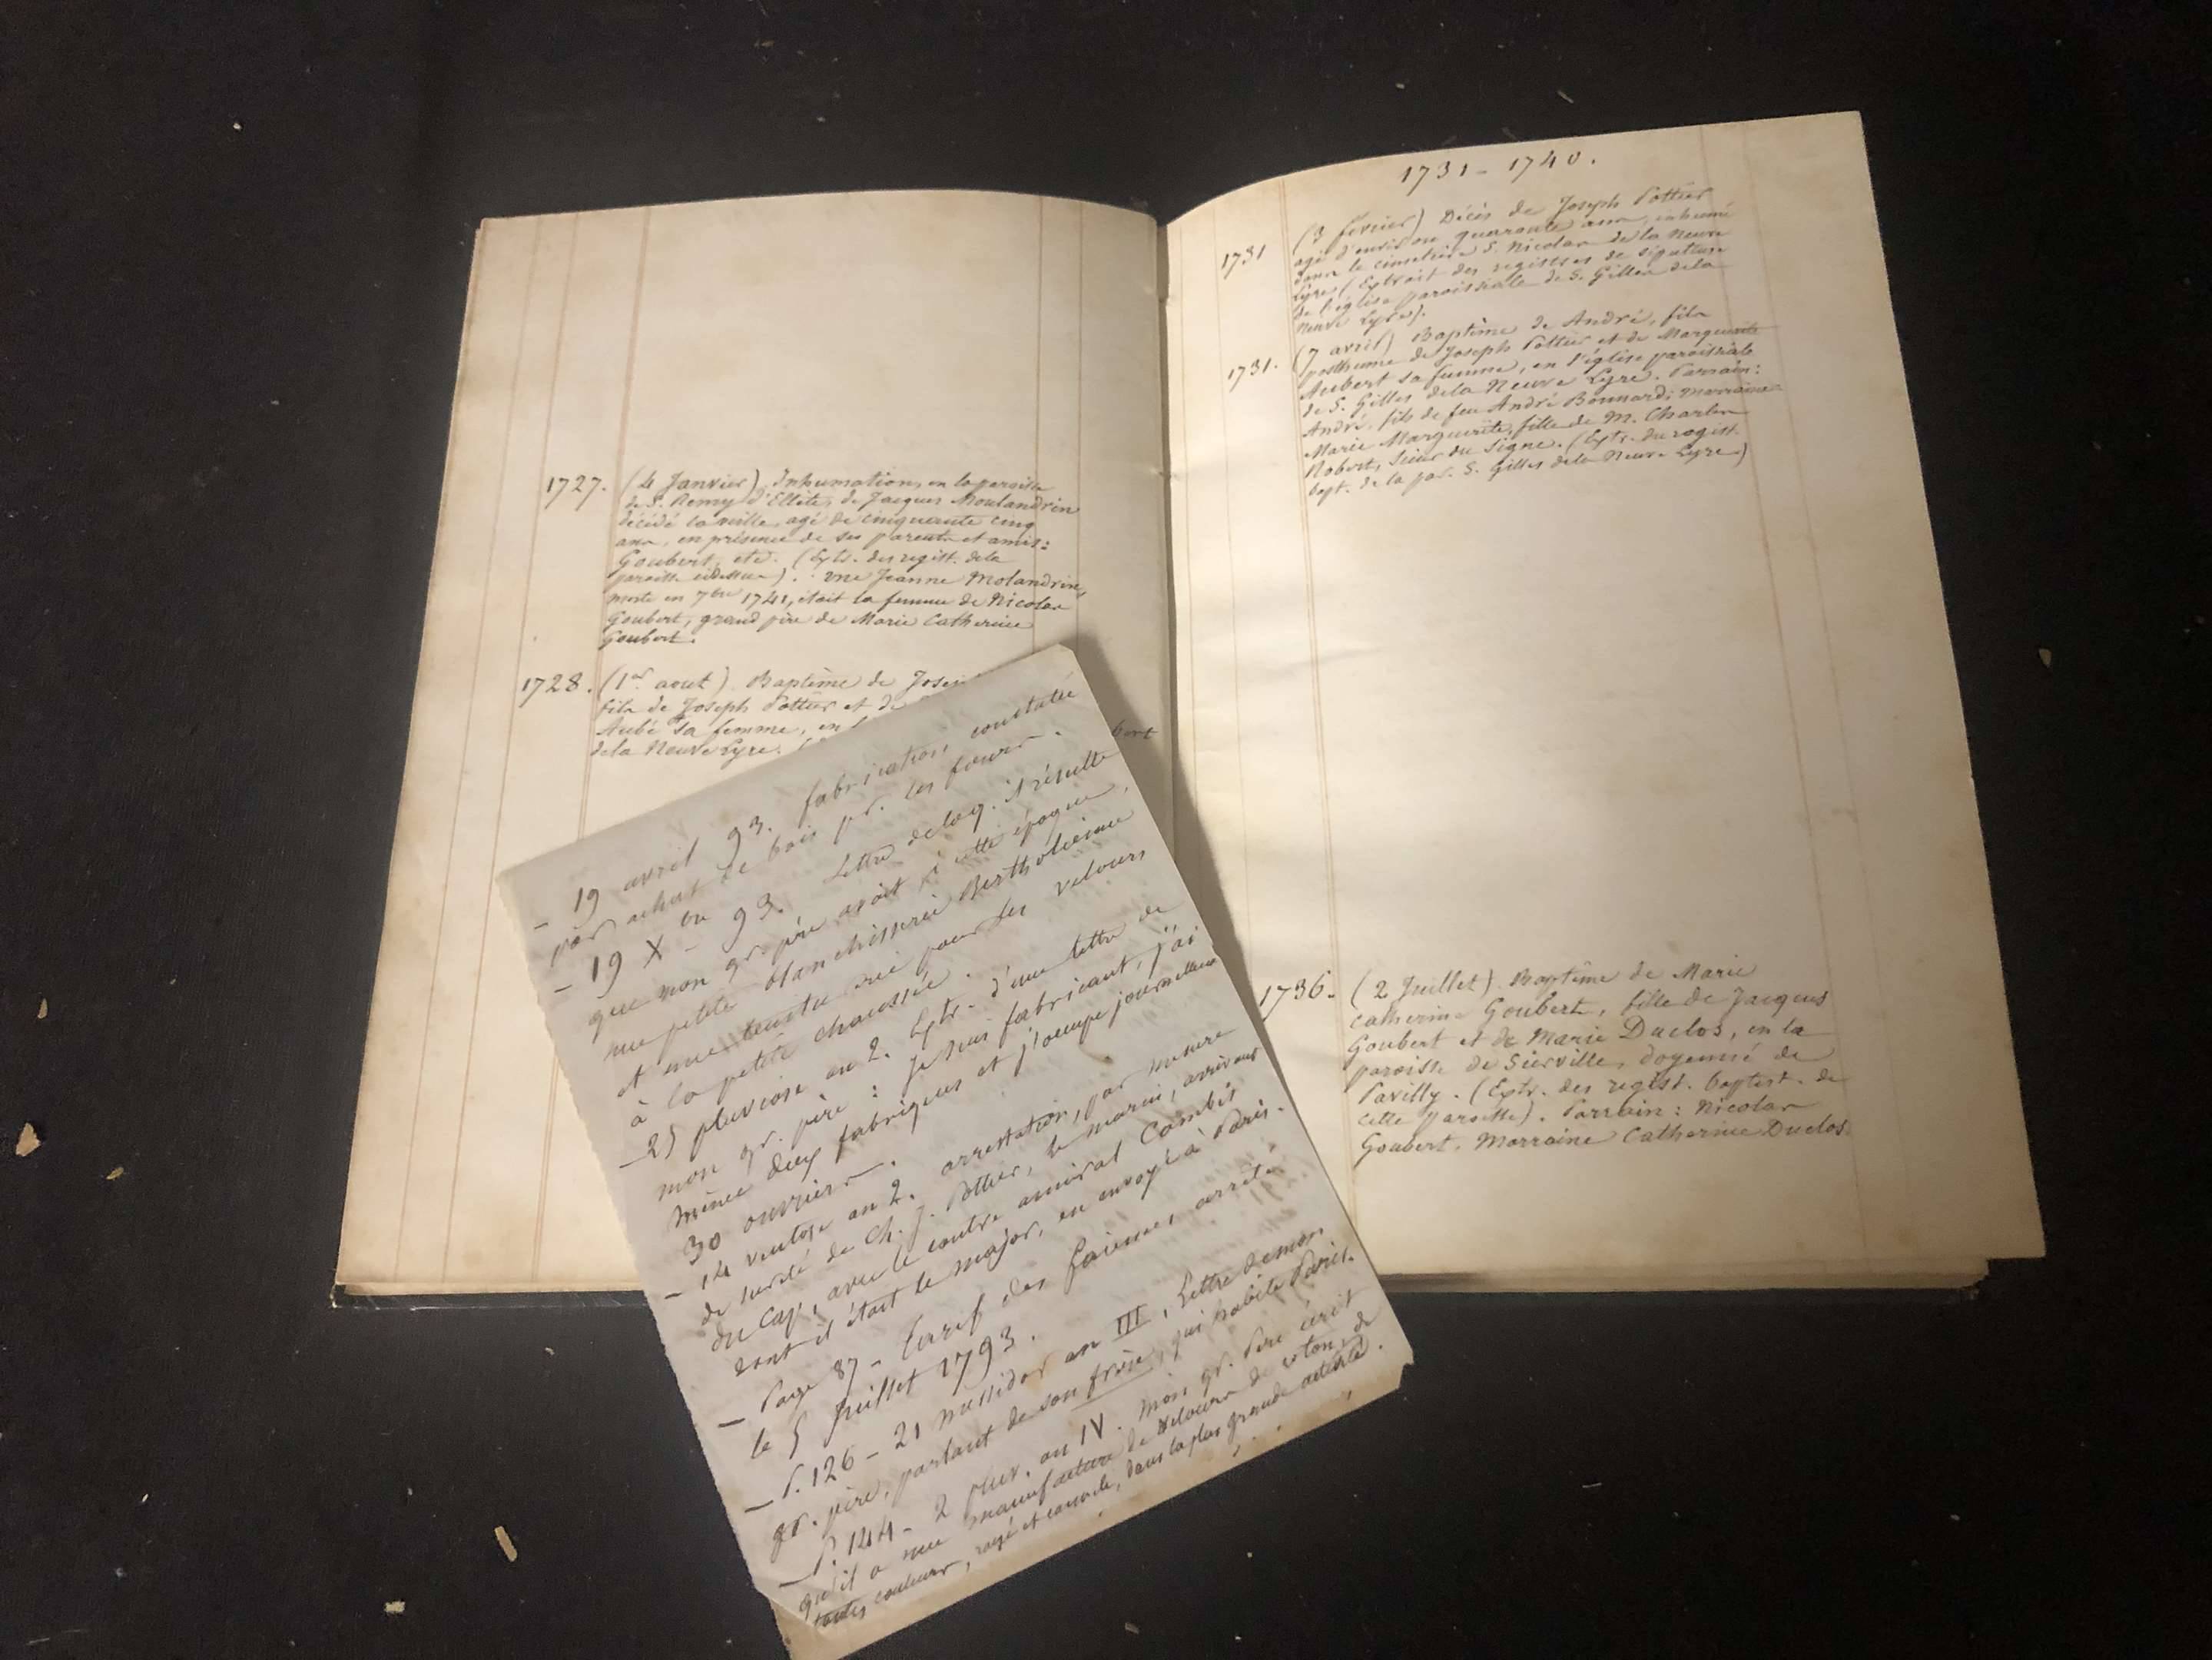 1727. (4 Janvier). Inhumation, en la paroisse
de S. Remy d'Ellete, de Jacques Moulandrin
décédé la veille, agé de cinquante cinq
ans, en présence de ses parents et amis:
Goubert, etc. (Extr. des regist. de la
paroisse cidessus). Une Jeanne Molandrin,
morte en 7bre 1741, était la femme de Nicolas
Goubert, grand père de Marie Catherine
Goubert.
1728. (1er. aout). Baptême de Josep
fils de Joseph Pottier et de
Aubé sa femme, en l
de la Neuve Lyre.
bert
1731 - 1740.
1731 (3 février) Décès de Joseph Pottier
agé d'environ quarante ans, inhumé
dans le cimetière S. Nicolas de la Neuve
Lyre (Extrait des registres de sépulture
de l'église paroissiale de S. Gilles de la
Neuve Lyre).
1731. (7 avril) Baptême de André, fils
posthume de Joseph Pottier et de Marguerite
Aubert sa femme, en l'église paroissiale
de S. Gilles de la Neuve Lyre. Parrain:
André, fils de feu André Bonnard; marraine
Marie Marguerite, fille de M. Charles
Robert, sieur du Signe. (Extr. du regist.
bapt. de la par. S. Gilles de la Neuve Lyre)
1736. (2 Juillet). Baptême de Marie
Catherine Goubert, fille de Jacques
Goubert et de Marie Duclos, en la
paroisse de Sierville, doyenné de
Pavilly. (Extr. des regist. baptist. de
cette paroisse). Parrain: Nicolas
Goubert. Marraine Catherine Duclos.
- 19 avril 93. fabrication constatée
par achat de bois pr. les fours.
- 19 Xbre 93. Lettre de laq. il résulte
que mon gr. père avait à cette époque,
une petite blanchisserie Bertholienne
et une teinturerie pour les velours
à la petite chaussée.
- 25 pluviose an 2. Extr. d'une lettre de
mon gr. père: je suis fabricant, j'ai
même deux fabriques et j'occupe journellemt
30 ouvriers.
- 14 ventose an 2. arrestation, par mesure
de sureté de Ch. J. Pottier, le marin, arrivant
du Cap, avec le contre amiral Cambis
dont il était le major, en envoyé à Paris.
- Page 87 - tarif des faiences arrêté
le 5 Juillet 1793.
- P. 126 - 21 messidor an III, Lettre de mon
gr. père, parlant de son frère, qui habite Paris.
- P. 144 - 2 pluv. an IV. Mon gr. Père écrit
qu'il a une manufacture de velours de coton, de
toutes couleurs, rayé et cannelé, dans la plus grande activité.